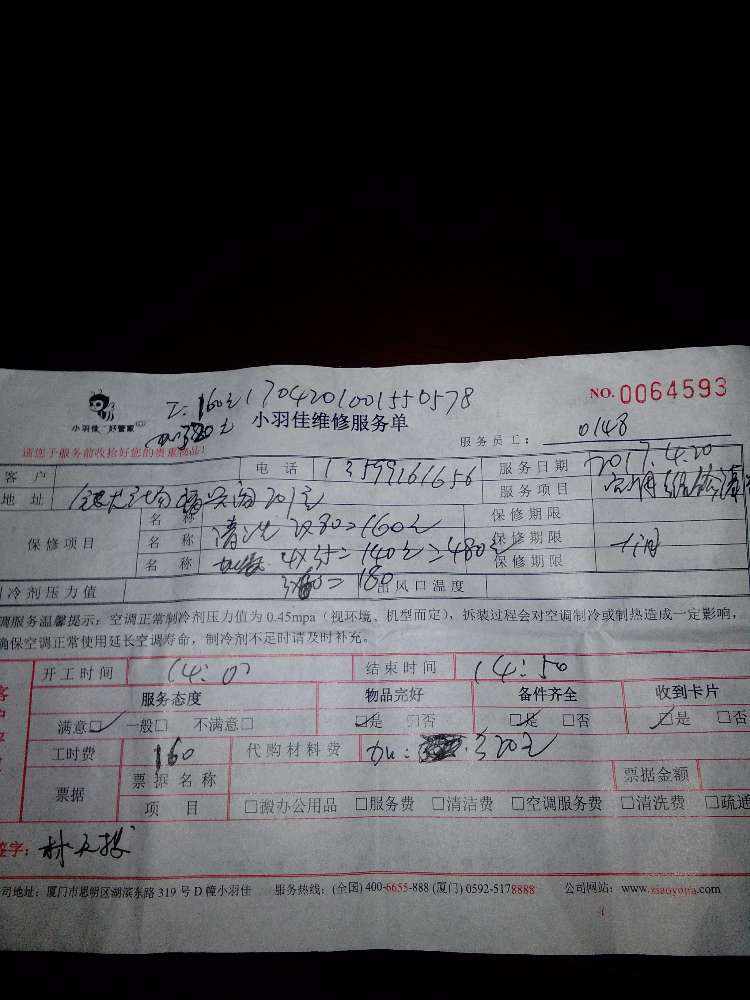 工:160元 170420100155 0578
加320元
小羽佳 好管家
NO. 0064593
小羽佳维修服务单
服务员工: 0148
请您于服务前收拾好您的贵重物品!
客户 电话 13599161656 服务日期 2017.4.20
地址 201室 服务项目 空调维修清洗
保修项目 名称 清洗 2x80=160元 保修期限
名称 4x35=140元 =480元 保修期限 一个月
名称 3x60=180 保修期限
制冷剂压力值 出风口温度
调服务温馨提示:空调正常制冷剂压力值为 0.45mpa(视环境、机型而定),拆装过程会对空调制冷或制热造成一定影响,
确保空调正常使用延长空调寿命,制冷剂不足时请及时补充。
开工时间 14:00 结束时间 14:50
服务态度 物品完好 备件齐全 收到卡片
满意☐ 一般☐ 不满意☐ ☐是 ☐否 ☐是 ☐否 ☐是 ☐否
工时费 160 代购材料费 加: 320元
票据 票据名称 票据金额
项目 ☐搬办公用品 ☐服务费 ☐清洁费 ☐空调服务费 ☐清洗费 ☐疏通
签字:
司地址:厦门市思明区湖滨东路 319 号 D 幢小羽佳 服务热线:(全国) 400-6655-888 (厦门) 0592-5178888 公司网站:www.xiaoyujia.com